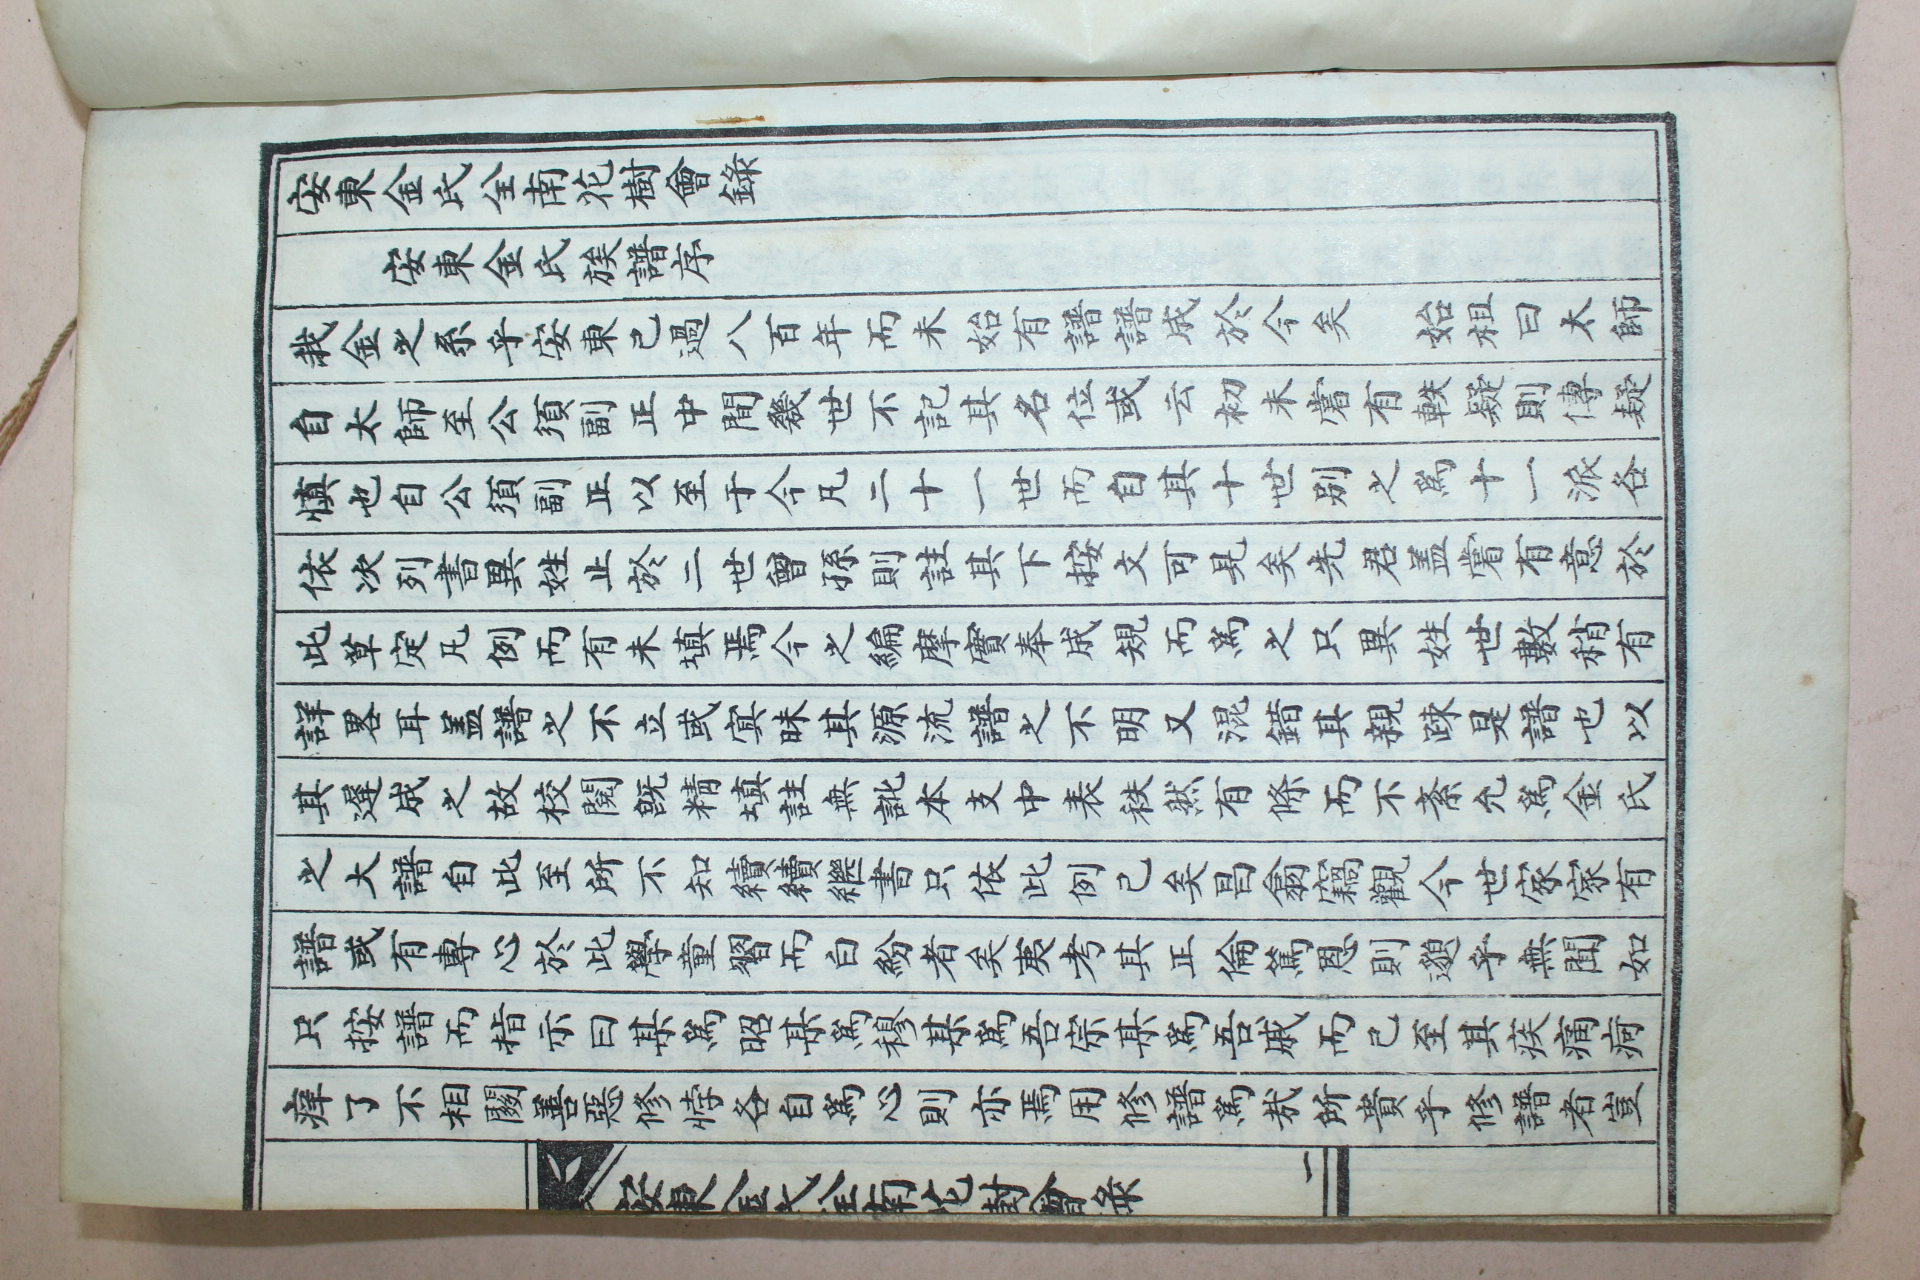 安東金氏全南花樹會錄
安東金氏族譜序
我金之系乎安東已過八百年而未始有譜譜成於今矣 始祖曰太師
自太師至公須副正中間幾世不記其名位或云初未嘗有軼疑則傳疑
愼也自公須副正以至于今凡二十一世而自其十世別之爲十一派各
依次列書異姓止於二世曾孫則註其下按文可見矣先君盖嘗有意於
此草定凡例而有未塡焉今之編摩實奉成規而爲之只異姓世數稍有
詳畧耳盖譜之不立或冥昧其源流譜之不明又混錯其親疎是譜也以
其遲成之故校閱旣精塡註無訛本支中表秩然有條而不紊允爲金氏
之大譜自此至所不知續續繼書只依此例已矣昌翕竊觀今世家家有
譜或有專心於此學童習而白紛者矣夷考其正倫篤恩則邈乎無聞如
只按譜而指示曰某爲昭某爲穆某爲吾宗某爲吾戚而已至其疾痛疴
痒了不相關善惡修悖各自爲心則亦焉用修譜爲哉所貴乎修譜者豈
安東金氏全南花樹會錄 一